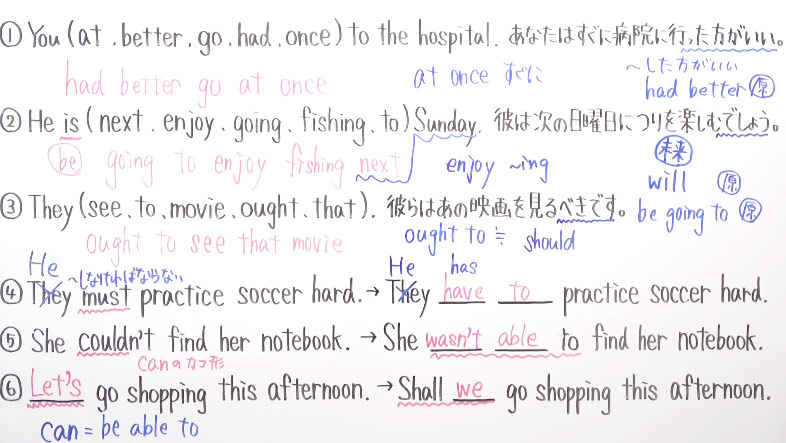 ① You (at . better . go . had . once) to the hospital. あなたはすぐに病院に行った方がいい。
had better go at once at once すぐに ~した方がいい
had better 原
② He is (next . enjoy . going . fishing . to) Sunday. 彼は次の日曜日につりを楽しむでしょう。
be going to enjoy fishing next enjoy ~ing 未来
will 原
③ They (see . to . movie . ought . that). 彼らはあの映画を見るべきです。 be going to 原
ought to see that movie ought to ≒ should
He ~しなければならない He has
④ They must practice soccer hard. → They have to practice soccer hard.
⑤ She couldn't find her notebook. → She wasn't able to find her notebook.
canのカコ形
⑥ Let's go shopping this afternoon. → Shall we go shopping this afternoon.
can = be able to